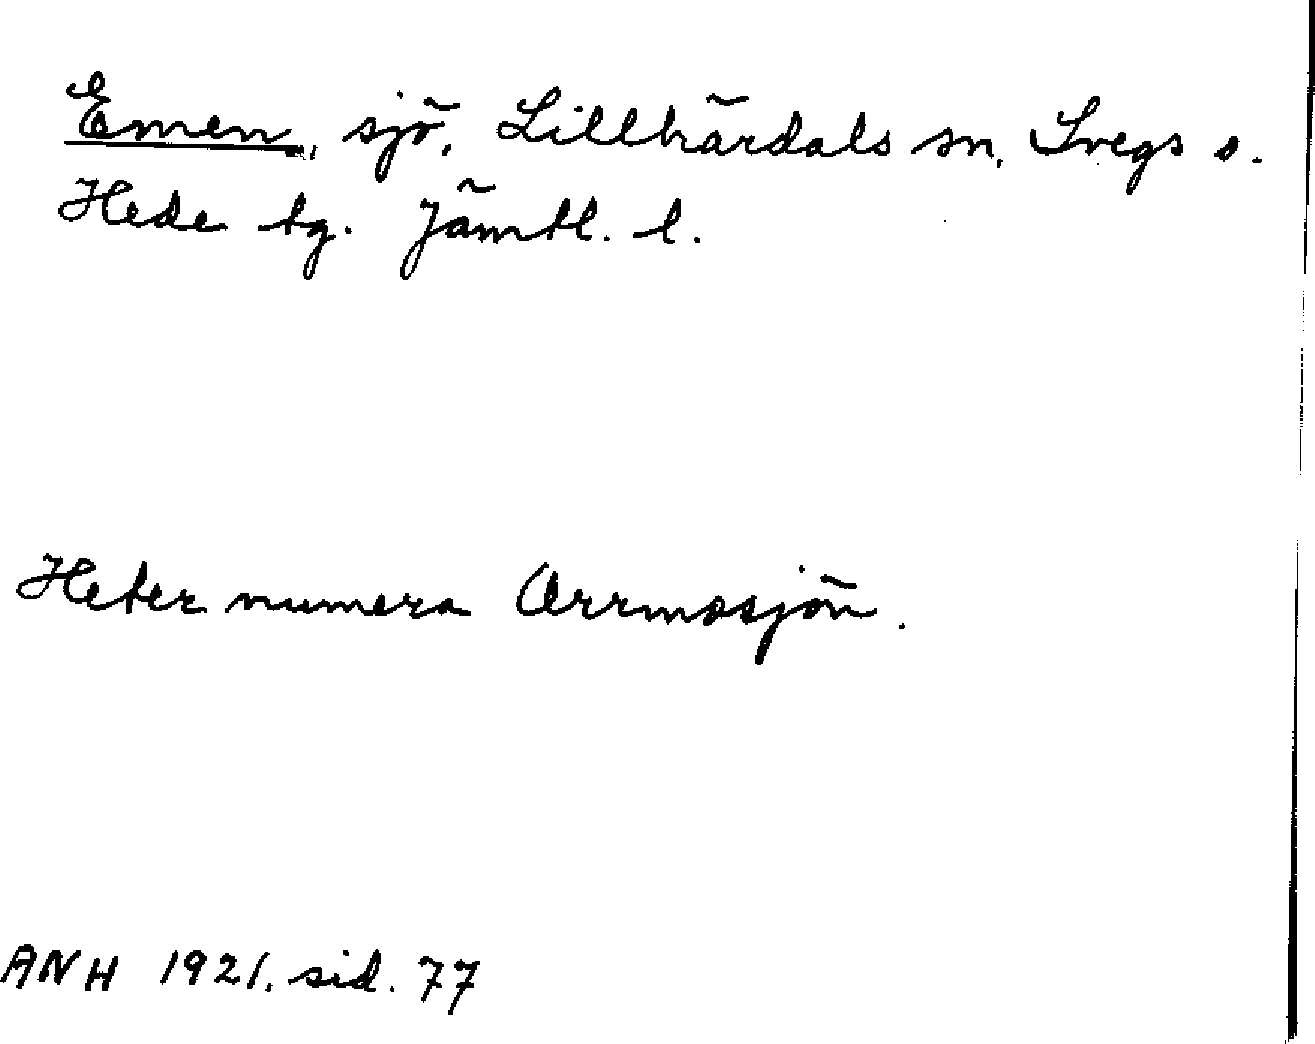 Emen, sjö, Lillhärdals sn, Svegs o.
Hede tg. Jämtl. l.
Heter numera Orrmosjön.
ANH 1921. sid. 77